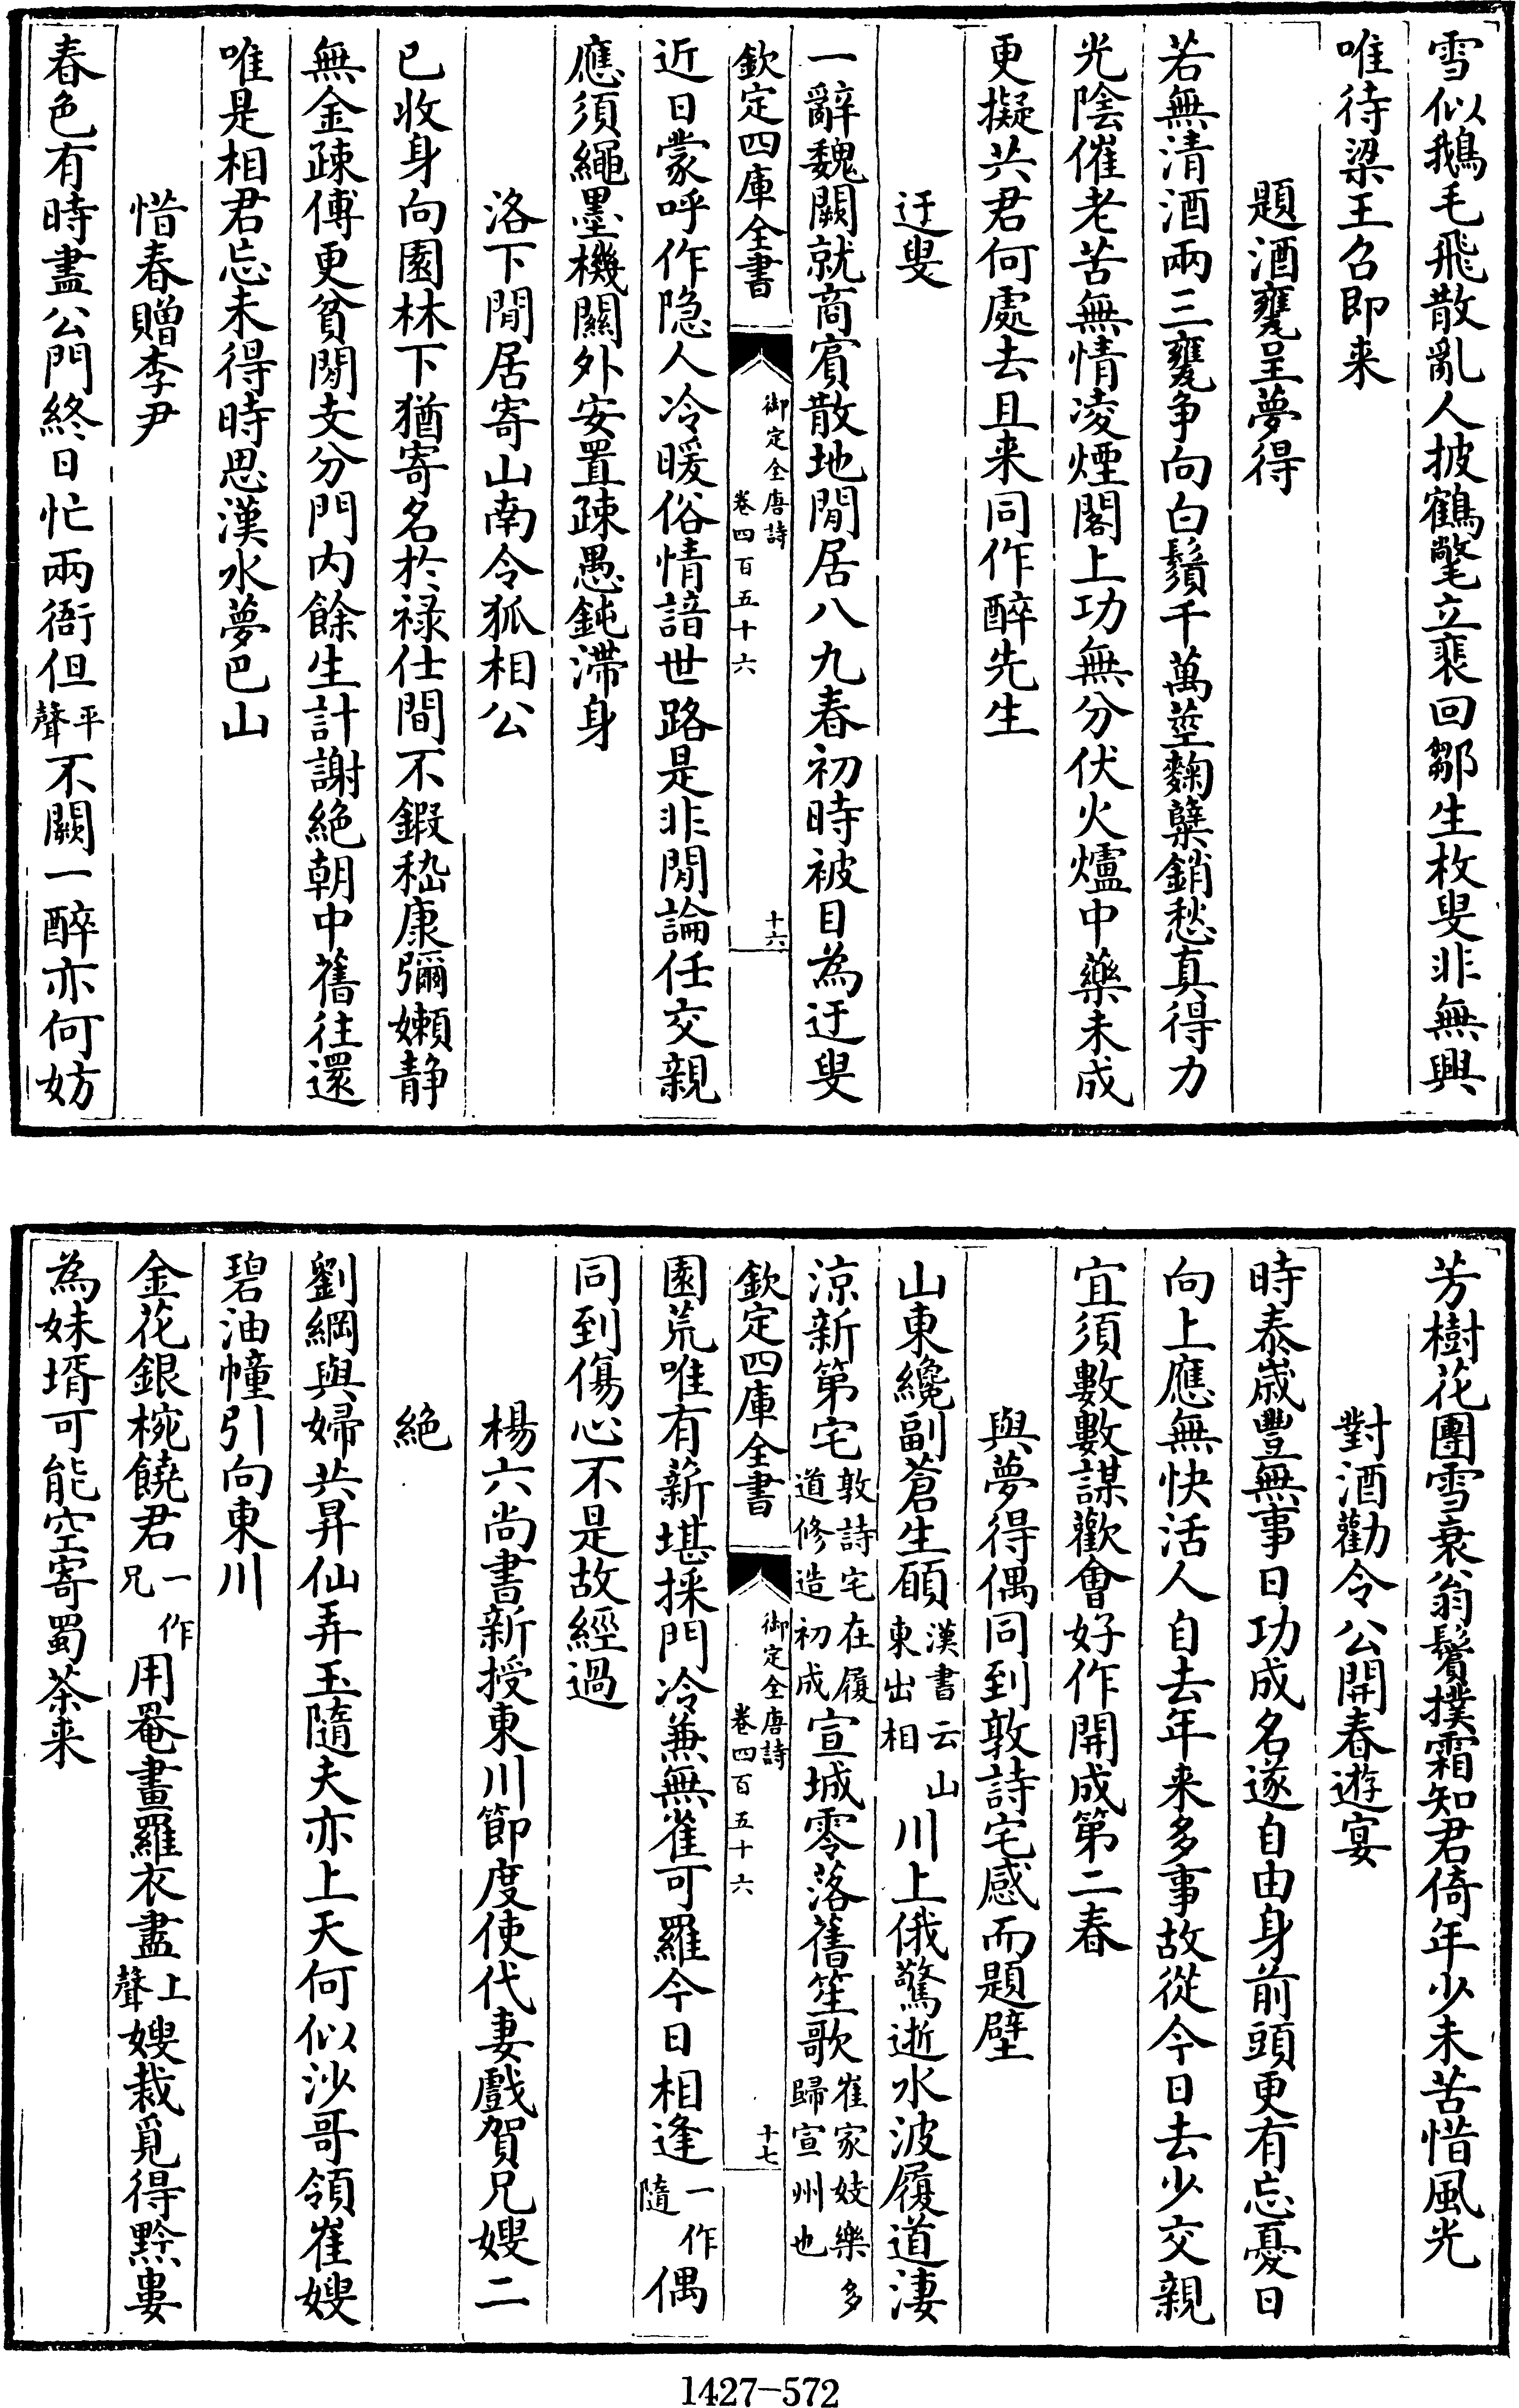 雪似鵝毛飛散亂人披鶴氅立裴回鄒生枚叟非無興
唯待梁王召即来
題酒甕呈夢得
若無清酒兩三甕争向白鬚千萬莖麴櫱銷愁真得力
光陰催老苦無情凌煙閣上功無分伏火爐中藥未成
更擬共君何處去且来同作醉先生
迂叟
一辭魏闕就商賓散地閒居八九春初時被目為迂叟
欽定四庫全書
御定全唐詩
卷四百五十六
十六
近日蒙呼作隐人冷暖俗情諳世路是非閒論任交親
應須繩墨機關外安置疎愚鈍滯身
洛下閒居寄山南令狐相公
已收身向園林下猶寄名於禄仕間不鍛嵇康彌嬾静
無金疎傅更貧閒支分門内餘生計謝絶朝中舊往還
唯是相君忘未得時思漢水夢巴山
惜春贈李尹
春色有時盡公門終日忙兩衙但平聲不闕一醉亦何妨
芳樹花團雪衰翁鬢撲霜知君倚年少未苦惜風光
對酒勸令公開春遊宴
時泰嵗豐無事日功成名遂自由身前頭更有忘憂日
向上應無快活人自去年来多事故從今日去少交親
宜須數數謀歡會好作開成第二春
與夢得偶同到敦詩宅感而題壁
山東纔副蒼生願漢書云山東出相川上俄驚逝水波履道淒
涼新第宅敦詩宅在履道修造初成宣城零落舊笙歌崔家妓樂多歸宣州也
欽定四庫全書
御定全唐詩
卷四百五十六
十七
園荒唯有薪堪採門冷兼無雀可羅今日相逢一作隨偶
同到傷心不是故經過
楊六尚書新授東川節度使代妻戲賀兄嫂二
絶
劉綱與婦共昇仙弄玉隨夫亦上天何似沙哥領崔嫂
碧油幢引向東川
金花銀椀饒君一作兄用罨畫羅衣盡上聲嫂裁覓得黔婁
為妹壻可能空寄蜀茶来
1427-572